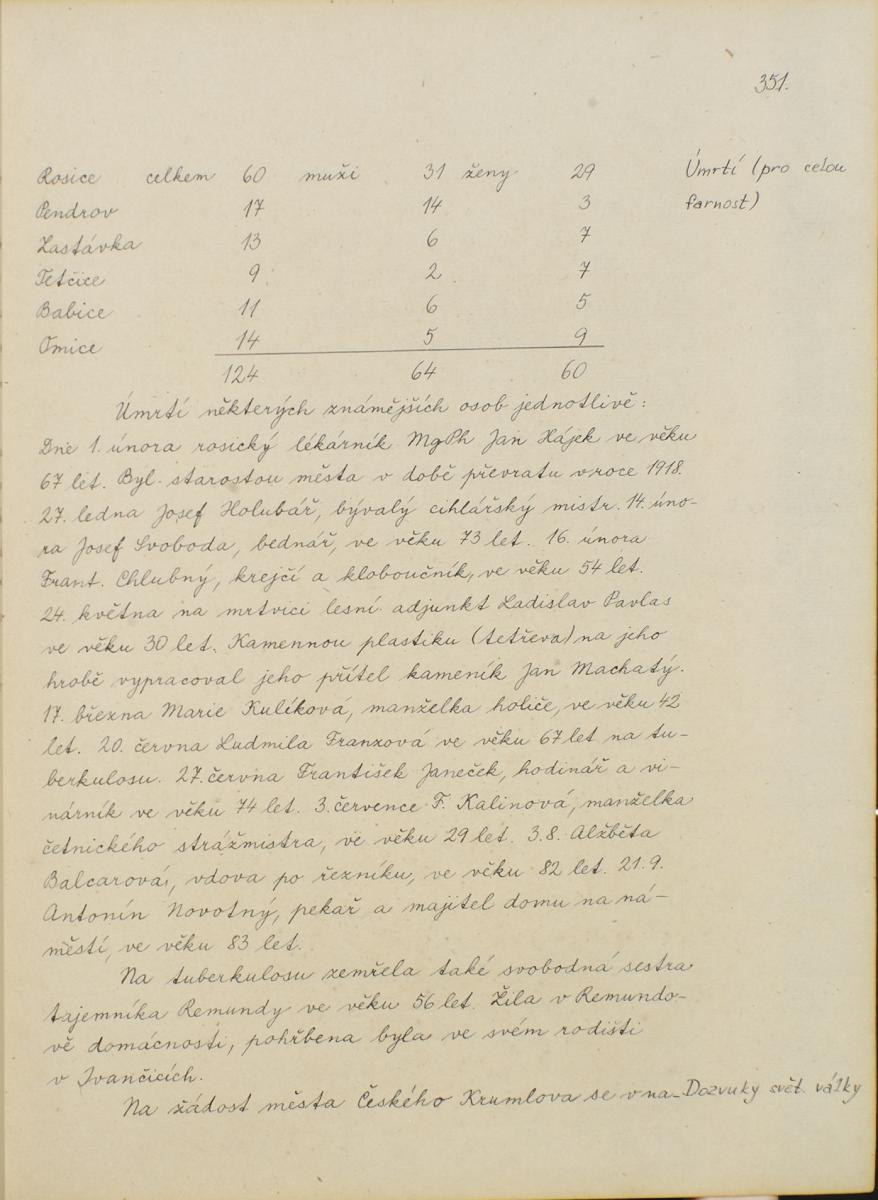 351.
Rosice celkem 60 muži 31 ženy 29 Úmrtí (pro celou
Pendrov 17 14 3 farnost)
Zastávka 13 6 7
Tetčice 9 2 7
Babice 11 6 5
Omice 14 5 9
124 64 60
Úmrtí některých známějších osob jednotlivě:
Dne 1. února rosický lékárník MgPh Jan Hájek ve věku
67 let. Byl starostou města v době převratu v roce 1918.
27. ledna Josef Holubář, bývalý cihlářský mistr. 14. úno-
ra Josef Svoboda, bednář, ve věku 73 let. 16. února
Frant. Chlubný, krejčí a kloboučník, ve věku 54 let.
24. května na mrtvici lesní adjunkt Ladislav Pavlas
ve věku 30 let. Kamennou plastiku (tetřeva) na jeho
hrobě vypracoval jeho přítel kameník Jan Machatý.
17. března Marie Kulíková, manželka holiče, ve věku 42
let. 20. června Ludmila Franzová ve věku 67 let na tu-
berkulosu. 27. června František Janeček, hodinář a vi-
nárník ve věku 74 let. 3. července F. Kalinová, manželka
četnického strážmistra, ve věku 29 let. 3.8. Alžběta
Balcarová, vdova po řezníku, ve věku 82 let. 21.9.
Antonín Novotný, pekař a majitel domu na ná-
městí, ve věku 83 let.
Na tuberkulosu zemřela také svobodná sestra
tajemníka Remundy ve věku 56 let. Žila v Remundo-
vě domácnosti, pohřbena byla ve svém rodišti
v Ivančicích.
Na žádost města Českého Krumlova se v na- Dozvuky svět. války